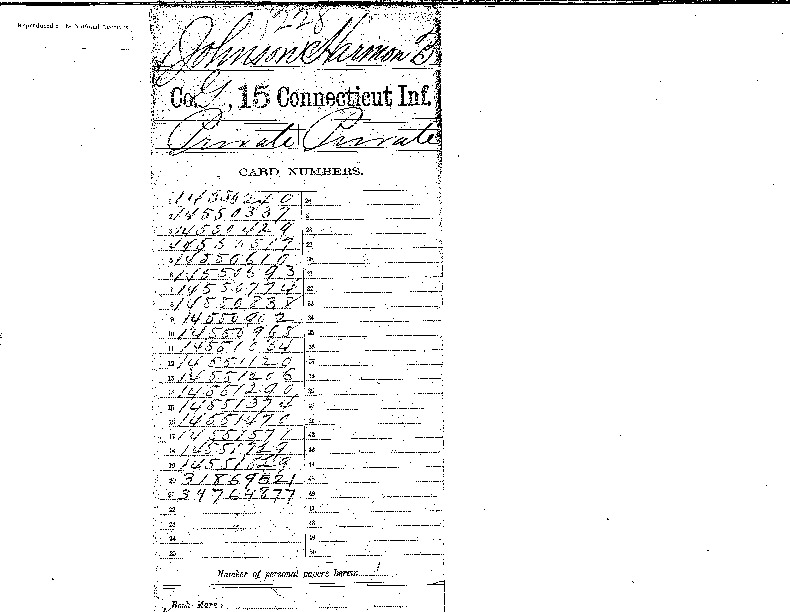 228
Reproduced at the National Archives
Johnson Harmon B
Co. G, 15 Connecticut Inf.
Private Private
CARD NUMBERS.
1 14550240
2 14550337
3 14550429
4 14550517
5 14550610
6 14550693
7 14550774
8 14550838
9 14550902
10 14550968
11 14551034
12 14551120
13 14551206
14 14551290
15 14551374
16 14551470
17 14551571
18 14551729
19 14551829
20 31869821
21 34764877
22
23
24
25
Number of personal papers herein 1
Book Mark: